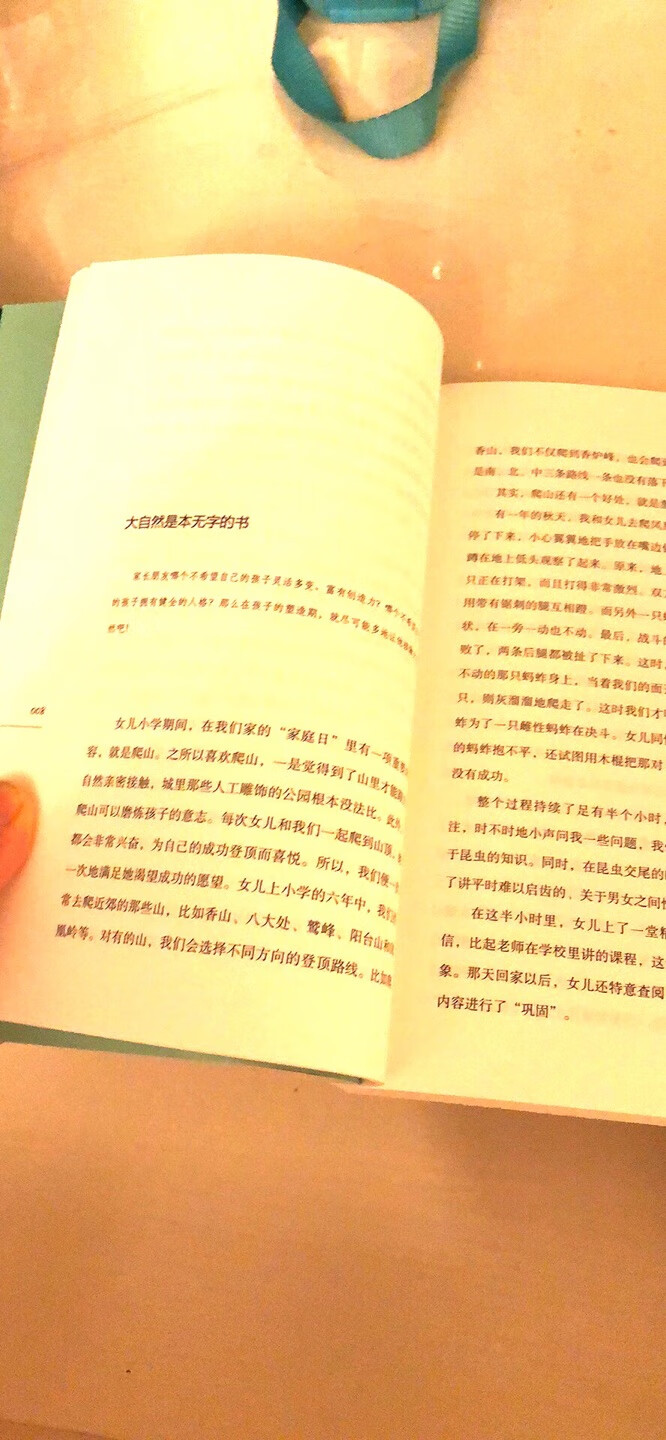 大自然是本无字的书
家长朋友哪个不希望自己的孩子灵活多变、富有创造力？哪个不希望
的孩子拥有健全的人格？那么在孩子的塑造期，就尽可能多地让他接
然吧！
008
女儿小学期间，在我们家的“家庭日”里有一项重要
容，就是爬山。之所以喜欢爬山，一是觉得到了山里才能
自然亲密接触，城里那些人工雕饰的公园根本没法比。此外
爬山可以磨炼孩子的意志。每次女儿和我们一起爬到山顶，
都会非常兴奋，为自己的成功登顶而喜悦。所以，我们便一
一次地满足她渴望成功的愿望。女儿上小学的六年中，我们
常去爬近郊的那些山，比如香山、八大处、鹫峰、阳台山和
凰岭等。对有的山，我们会选择不同方向的登顶路线。比如
香山，我们不仅爬到香炉峰，也会爬
是南、北、中三条路线一条也没有落下
其实，爬山还有一个好处，就是
有一年的秋天，我和女儿去爬凤
停了下来，小心翼翼地把手放在嘴边
蹲在地上低头观察了起来。原来，地
只正在打架，而且打得非常激烈。双
用带有锯刺的腿互相蹬。而另外一只
状，在一旁一动也不动。最后，战斗
败了，两条后腿都被扯了下来。这时，
不动的那只蚂蚱身上，当着我们的面
只，则灰溜溜地爬走了。这时我们才
蚱为了一只雌性蚂蚱在决斗。女儿同
的蚂蚱抱不平，还试图用木棍把那对
没有成功。
整个过程持续了足有半个小时，
注，时不时地小声问我一些问题，我
于昆虫的知识。同时，在昆虫交尾的
了讲平时难以启齿的、关于男女之间
在这半小时里，女儿上了一堂
信，比起老师在学校里讲的课程，这
象。那天回家以后，女儿还特意查阅
内容进行了“巩固”。